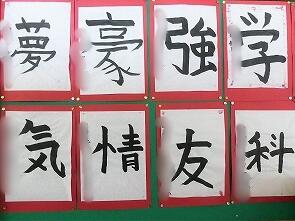 夢 豪 強 学
気 情 友 科